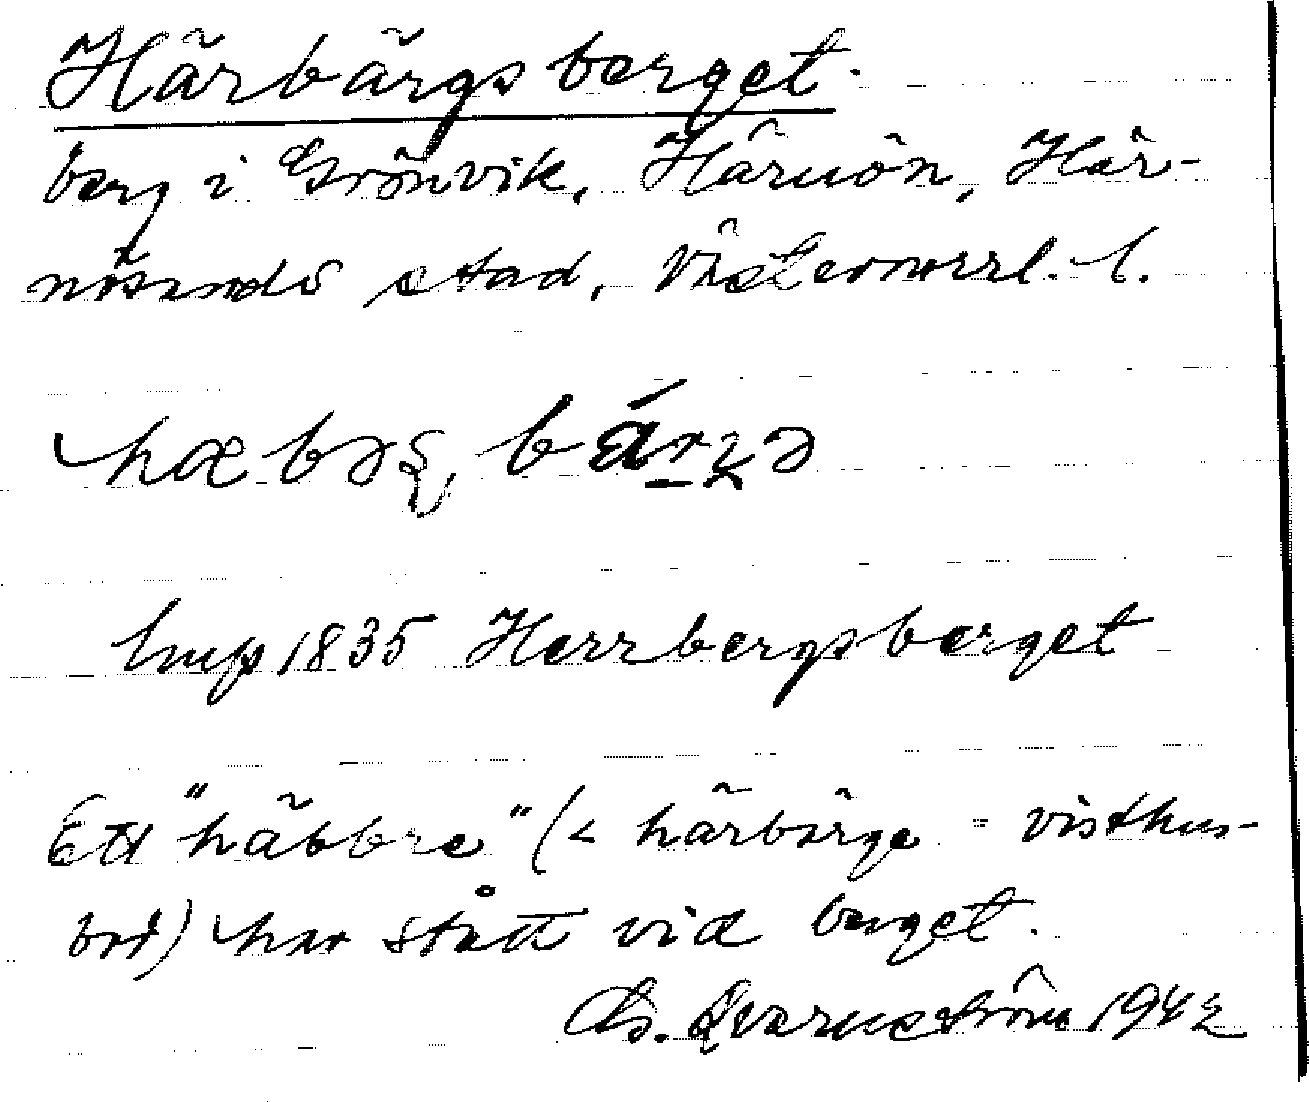 Härbärgsberget.
berg i Grönvik, Härnön, Här-
nösands stad, Västernorrl. l.
hmp 1835 Herrbergsberget
Ett "häbbre" (< härbärge = visthus-
bod) har stått vid berget.
Qvarnström 1942